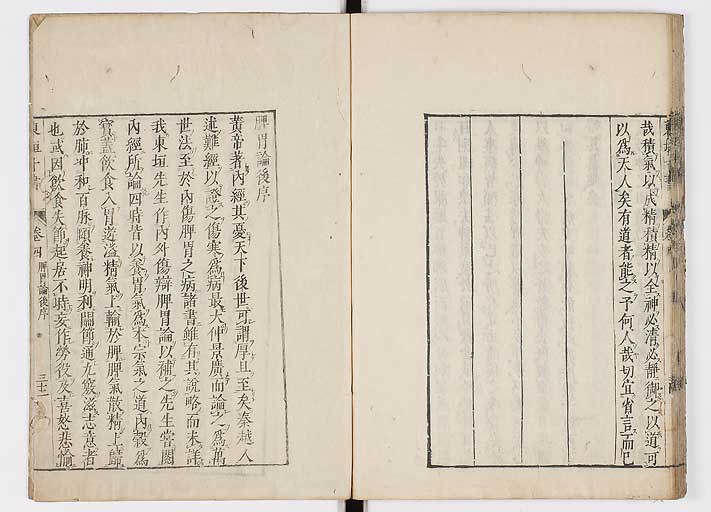 哉積氣以成精積精以全神必清必靜御之以道可
以為天人矣有道者能之予何人哉切宜省言而已
脾胃論後序
黃帝著內經其憂天下後世可謂厚且至矣秦越人
述難經以證之傷寒為病最大仲景廣而論之為萬
世法至於內傷脾胃之病諸書雖有其說略而未詳
我東垣先生作內外傷辯脾胃論以補之先生嘗閱
內經所論四時皆以養胃氣為本宗氣之道內穀為
寶蓋飲食入胃遊溢精氣上輸於脾脾氣散精上歸
於肺沖和百脉頤養神明利關節通九竅滋志意者
也或因飲食失節起居不時妄作勞役及喜怒悲愉
卷四
脾胃論後序
三十二